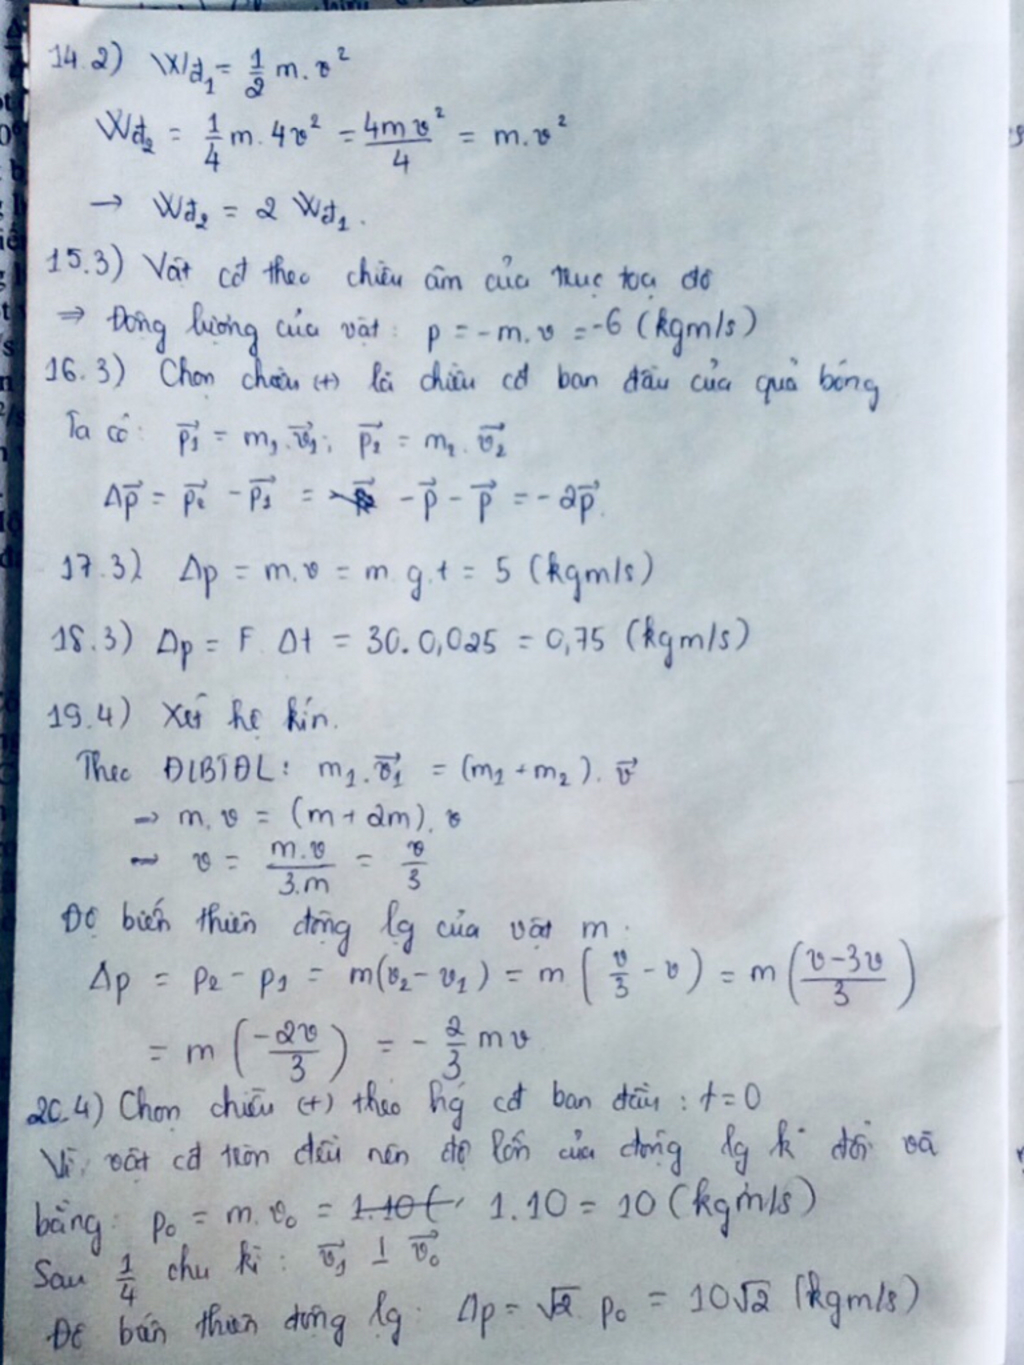 14.2) Wđ₁ = 1/2 m.v²
Wđ₂ = 1/4 m.4v² = 4mv²/4 = m.v²
→ Wđ₂ = 2 Wđ₁.
15.3) Vật cđ theo chiều âm của trục toạ độ
⇒ Động lượng của vật: p = -m.v = -6 (kgm/s)
16.3) Chọn chiều (+) là chiều cđ ban đầu của quả bóng
Ta có: p⃗₁ = m₁.v⃗₁; p⃗₂ = m₂.v⃗₂
Δp⃗ = p⃗₂ - p⃗₁ = -p⃗ - p⃗ = -2p⃗.
17.3) Δp = m.v = m.g.t = 5 (kgm/s)
18.3) Δp = F Δt = 30.0,025 = 0,75 (kgm/s)
19.4) Xét hệ kín.
Theo ĐLBTĐL: m₁.v⃗₁ = (m₁ + m₂).v⃗
→ m.v = (m + 2m).v
→ v = m.v/3.m = v/3
Độ biến thiên động lg của vật m:
Δp = p₂ - p₁ = m(v₂ - v₁) = m (v/3 - v) = m (v-3v/3)
= m (-2v/3) = - 2/3 mv
20.4) Chọn chiều (+) theo hg cđ ban đầu: t=0
Vì vật cđ tròn đều nên độ lớn của động lg k đổi và
bằng: p₀ = m.v₀ = 1.10 = 10 (kgm/s)
Sau 1/4 chu kì: v⃗₁ ⊥ v⃗₀
Độ biến thiên động lg: Δp = √2 p₀ = 10√2 (kgm/s)